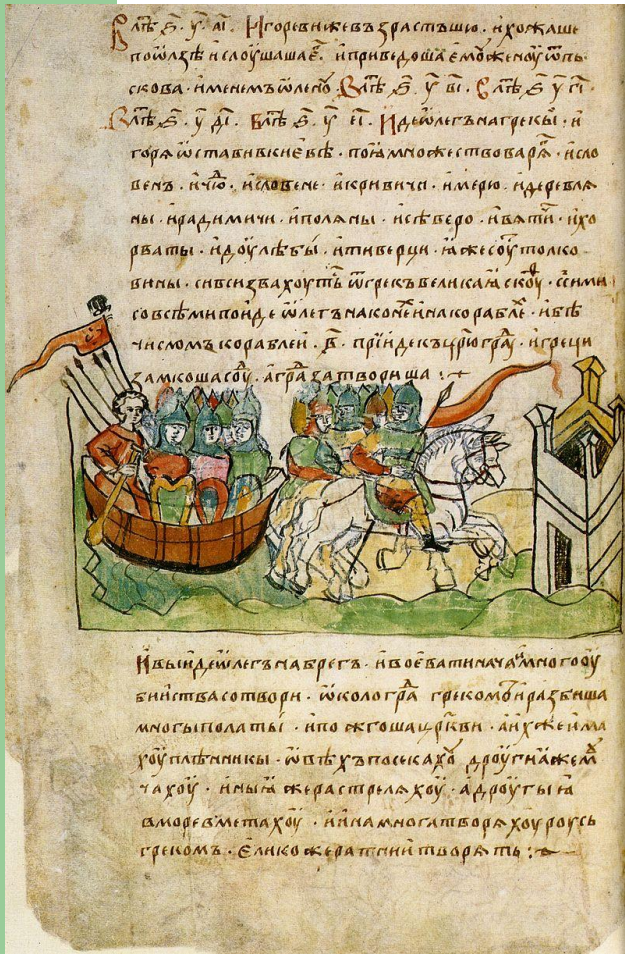 В лѣⷮ ҂ѕ҃. у҃. а҃і. Игореви же възрастъшю. и хожаше
по ѡлзѣ и слоушашаеⷢ҇. и приведоша емоу женоу ѿ пь
скова. именемъ ѡленоу. В лѣⷮ ҂ѕ҃. у҃ в҃і. В лѣⷮ ҂ѕ҃ у҃ г҃і.
В лѣⷮ ҂ѕ҃. у҃ д҃і. В лѣⷮ ҂ѕ҃. у҃ е҃і. Иде ѡлегъ на грекы. и
горѧ ѡставивъ кіевѣ. поꙗ множество варѧⷢ. и сло
венъ. и чюⷣ. и словене. и кривичи. и мерю. и деревлѧ
ны. и радимичи. и полѧны. и сѣверо. и вѧтиⷱ. и хо
рваты. и доулѣбы. и тиверци. ꙗже соуⷮ толко
вины. си вси звахоуть ѿ грекъ великаꙗ скоуⷴ. с сими
со всѣми поиде ѡлегъ на конеⷯ и на кораблеⷯ. и бѣ
числомъ кораблеи. ҂в҃. прїиде къ цр҃юграⷣу. и греци
замкоша соуⷣ. а граⷣ затвориша :~
И выиде ѡлегъ на брегъ. и воевати нача. и много оу
бииства сотвори. ѡколо граⷣ грекомъ и разбиша
многы полаты. и пожгоша цр҃кви. а ихже има
хоу плѣнникы. ѡвѣхъ посекахоу дроугиꙗ же мⷱ҇
чахоу. иныꙗ же растрелѧхоу. а дроугыꙗ
в море вметахоу. и ина многа творѧхоу роусь
грекомъ. елико же ратнии творѧть :~